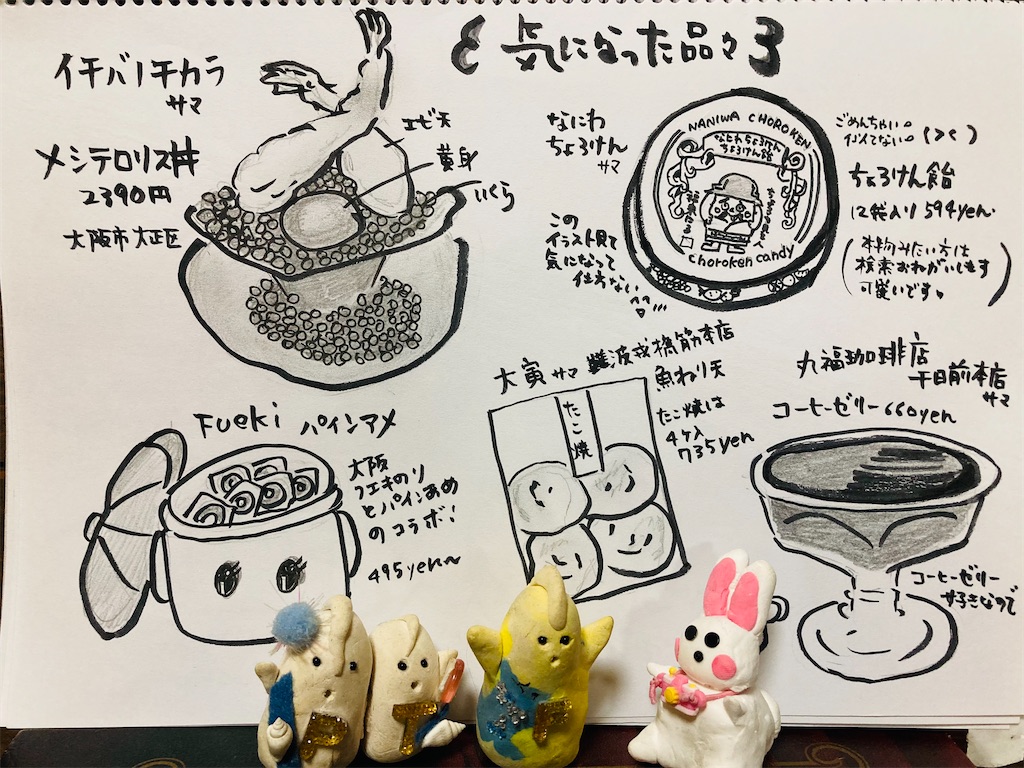 気になった品々
イチバノチカラ
サマ
メシテロリス丼
2390円
大阪市大正区
エビ天
黄身
いくら
なにわ
ちょろけん
サマ
この
イラスト見て
気になって
仕方ない
NANIWA CHOROKEN
なにわちょろけん
ちょろけん飴
choroken candy
ごめんちゃい。
似てない。(><)
ちょろけん飴
12袋入り 594yen.
(本物みたい方は
検索おねがいします
可愛いです。)
Fueki パインアメ
大阪
フエキのり
とパインあめ
のコラボ!
495yen~
大寅サマ 難波戎橋筋本店
魚ねり天
たこ焼は
4ケ入
735yen
たこ焼
丸福珈琲店
千日前本店
サマ
コーヒーゼリー660yen
コーヒーゼリー
好きなので
P
T
F